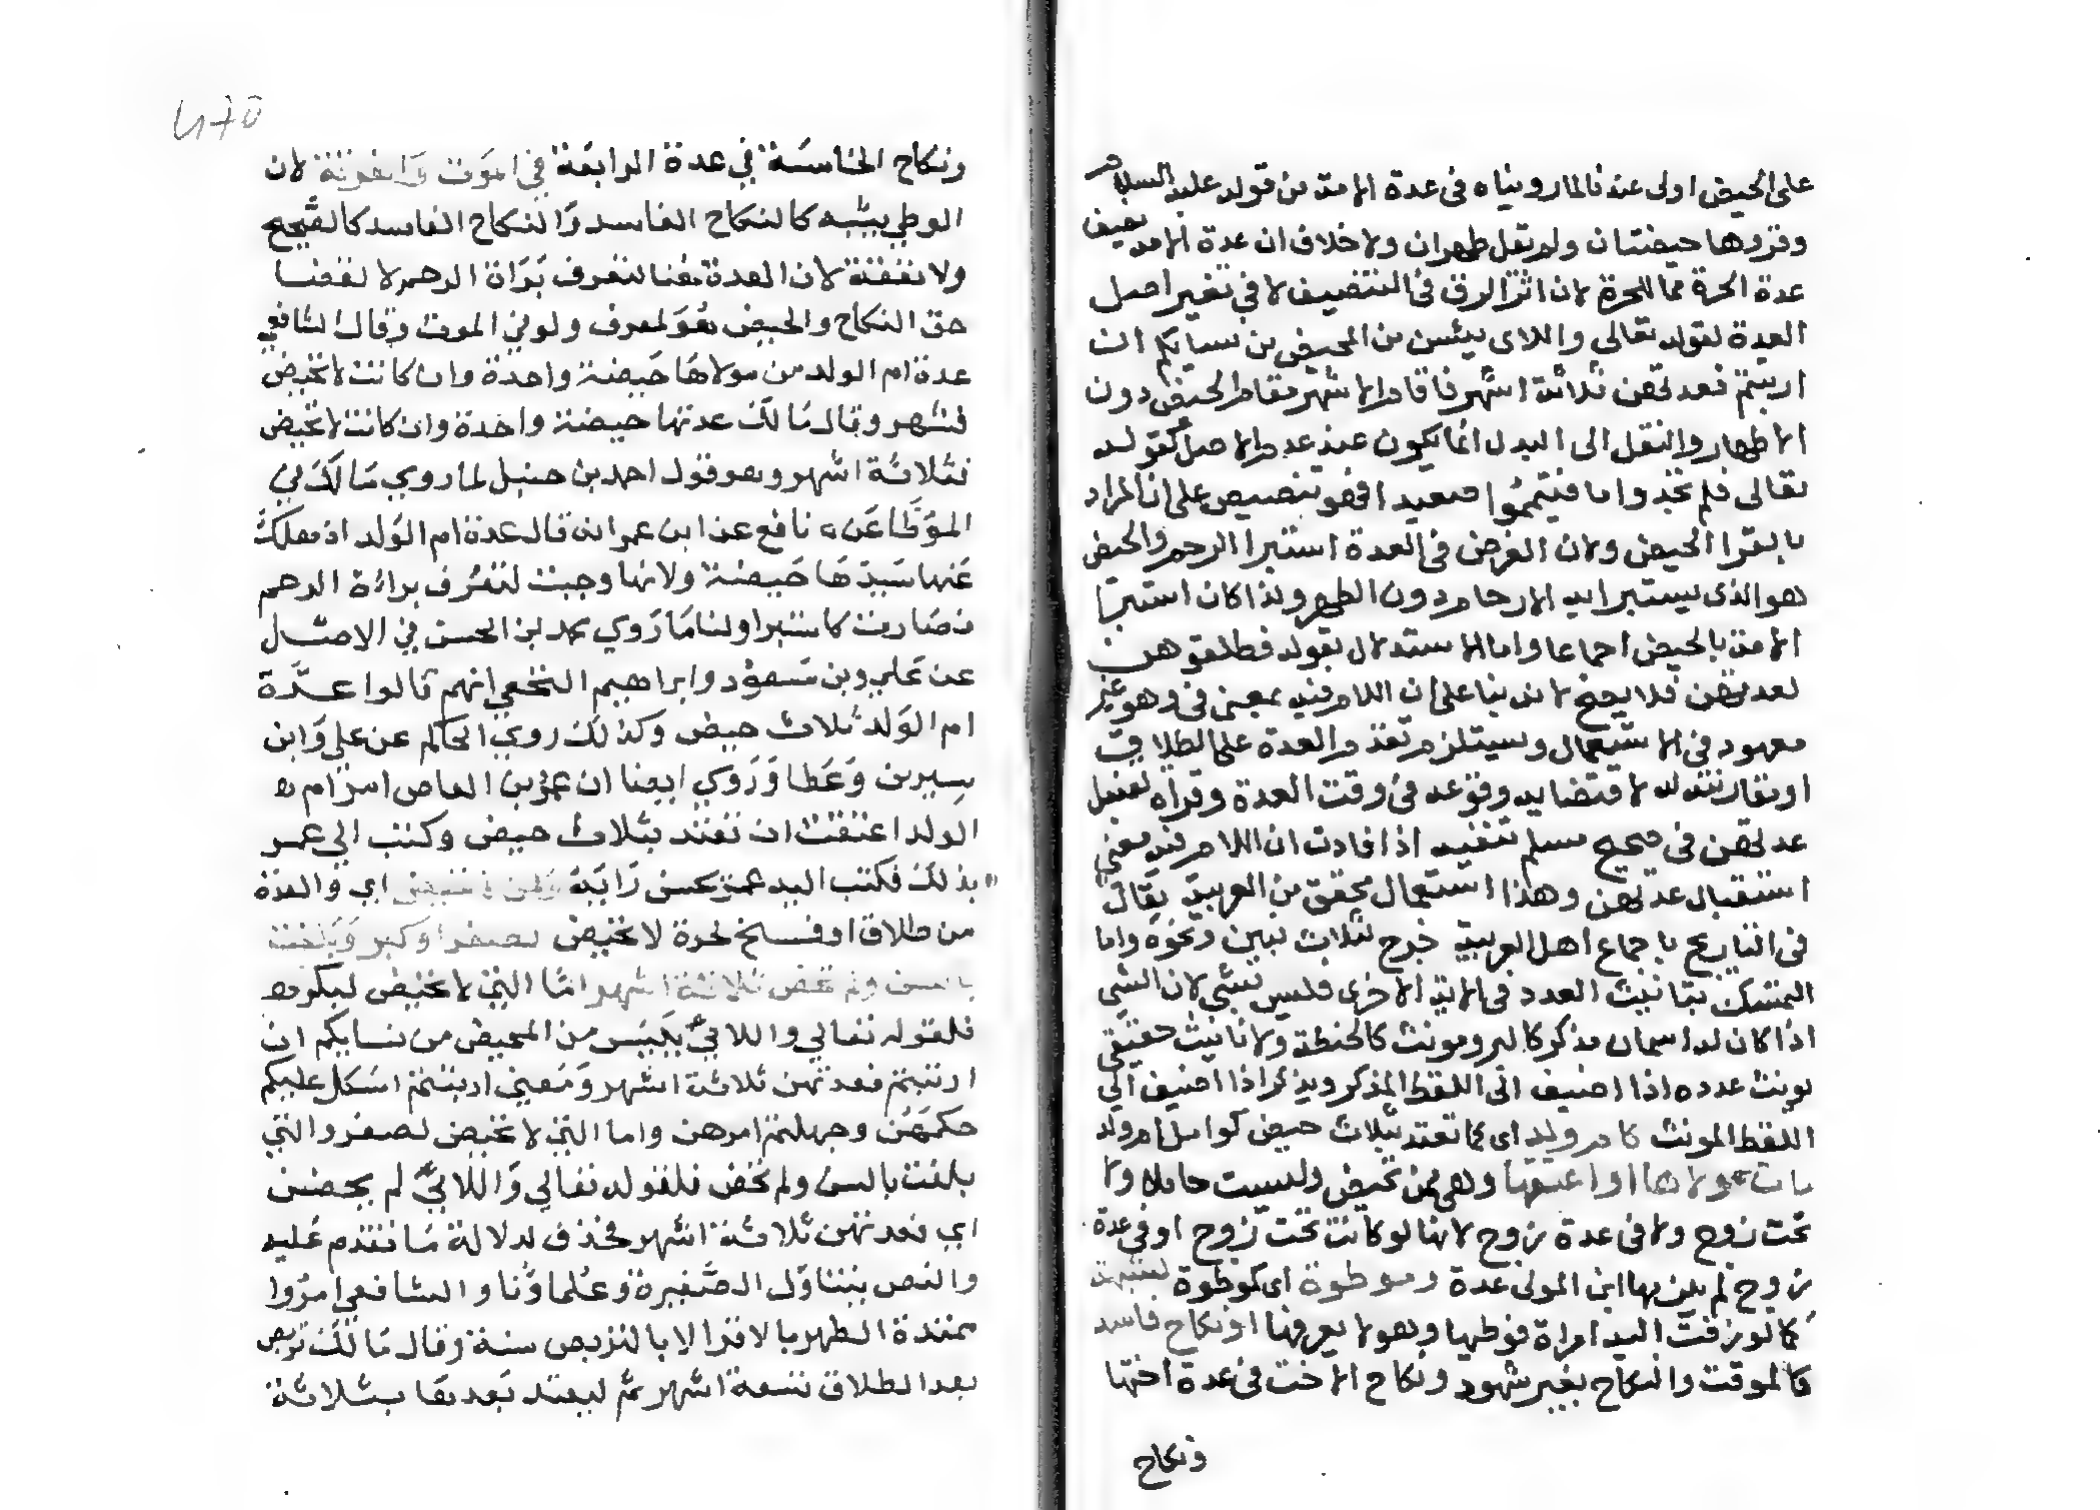 على الحيض اولى عندنا لما رويناه فى عدة الامة من قوله عليه السلام
وقروها حيضتان ولم يقل طهران ولا خلاف ان عدة الامة نصف
عدة الحرة مما للحرة لان اثر الرق فى التنصيف لا في تغير اصل
العدة لقوله تعالى واللاى يئسن من المحيض من نسايكم ان
ارتبتم فعدتهن ثلاثة اشهر فاقام الاشهر مقام الحيض دون
الاطهار والنقل الى البدل انما يكون عند عدم الاصل كقوله
تعالى فلم تجدوا ما فتيمموا صعيدا فهو تنصيص على ان المراد
بالقرا الحيض ولان الغرض فى العدة استبرا الرحم والحيض
هو الذى يستبرا به الارحام دون الطهر ولذا كان استبرا
الامة بالحيض اجماعا واما الاستدلال بقوله فطلقوهن
لعدتهن فلا يصح لانه بنا على ان اللام فيه بمعنى فى وهو غير
معهود فى الاستعمال ويستلزم تقدم العدة على الطلاق
او تقارنته له لاقتضايه وقوعه فى وقت العدة وقراه لقبل
عدتهن فى صحيح مسلم تنفيه اذا فادت ان اللام فيه معنى
استقبال عدتهن وهذا استعمال محقق من العربية يقال
فى التاريخ باجماع اهل العربية خرج لثلاث بقين ونحوه واما
التمسك بتانيث العدد فى الاية الاخرى فليس بشى لان الشى
اذا كان له اسمان مذكر كالبر ومونث كالحنطة ولا تانيث حقيقي
يونث عدده اذا اضيف الى اللفظ المذكر ويذكر اذا اضيف الى
اللفظ المونث كام ولد اى كما تعتد بثلاث حيض كوامل ام ولد
مات مولاها او اعتقها وهى ممن تحيض وليست حاملا ولا
تحت زوج ولا فى عدة زوج لانها لو كانت تحت زوج او فى عدة
زوج لم يبن بها ابن المولى عدة وموطوة اى كموطوة بشبهة
كما لو زفت اليه امراة فوطيها وهو لا يعرفها او نكاح فاسد
كالموقت والنكاح بغير شهود ونكاح الاخت فى عدة اختها
ونكاح
٤٧٥
ونكاح الخامسة في عدة الرابعة في الموت والفرقة لان
الوطي بشبهه كالنكاح الفاسد والنكاح الفاسد كالصحيح
ولا نفقة لان العدة هنا لتعرف براة الرحم لا لقضا
حق النكاح والحيض هو المعرف ولو في الموت وقال الشافعي
عدة ام الولد من مولاها حيضة واحدة وان كانت لا تحيض
فشهر وقال مالك عدتها حيضة واحدة وان كانت لا تحيض
فثلاثة اشهر وهو قول احمد بن حنبل لما روي مالك في
الموطا عن نافع عن ابن عمر انه قال عدة ام الولد اذ هلك
عنها سيدها حيضة ولانها وجبت لتعرف براءة الرحم
فصارت كاستبرا ولنا ما روي محمد بن الحسن في الاصل
عن علي وبن مسعود وابراهيم النخعي انهم قالوا عدة
ام الولد ثلاث حيض وكذلك روي الحاكم عن علي وابن
سيرين وعطا وروي ايضا ان عمرو بن العاص امر ام
الولد اعتقت ان تعتد بثلاث حيض وكتب الي عمر
بذلك فكتب اليه عمر بحسن رايه ولمن لا تحيض اي والعدة
من طلاق او فسخ لحرة لا تحيض لصغر او كبر وبلغت
بالسن ولم تحض ثلاثة اشهر اما التي لا تحيض لكبر
فلقوله تعالي واللائي يئسن من المحيض من نسايكم ان
ارتبتم فعدتهن ثلاثة اشهر ومعني ارتبتم اشكل عليكم
حكمهن وجهلتم امرهن واما التي لا تحيض لصغر والتي
بلغت بالسن ولم تحض فلقوله تعالي واللائي لم يحضن
اي فعدتهن ثلاثة اشهر فحذف لدلالة ما تقدم عليه
والنص يتناول الصغيرة وعلماؤنا والشافعي امروا
ممتدة الطهر بالاقرا لا بالتربص سنة وقال مالك تربص
بعد الطلاق تسعة اشهر ثم ليعتد بعدها بثلاثة